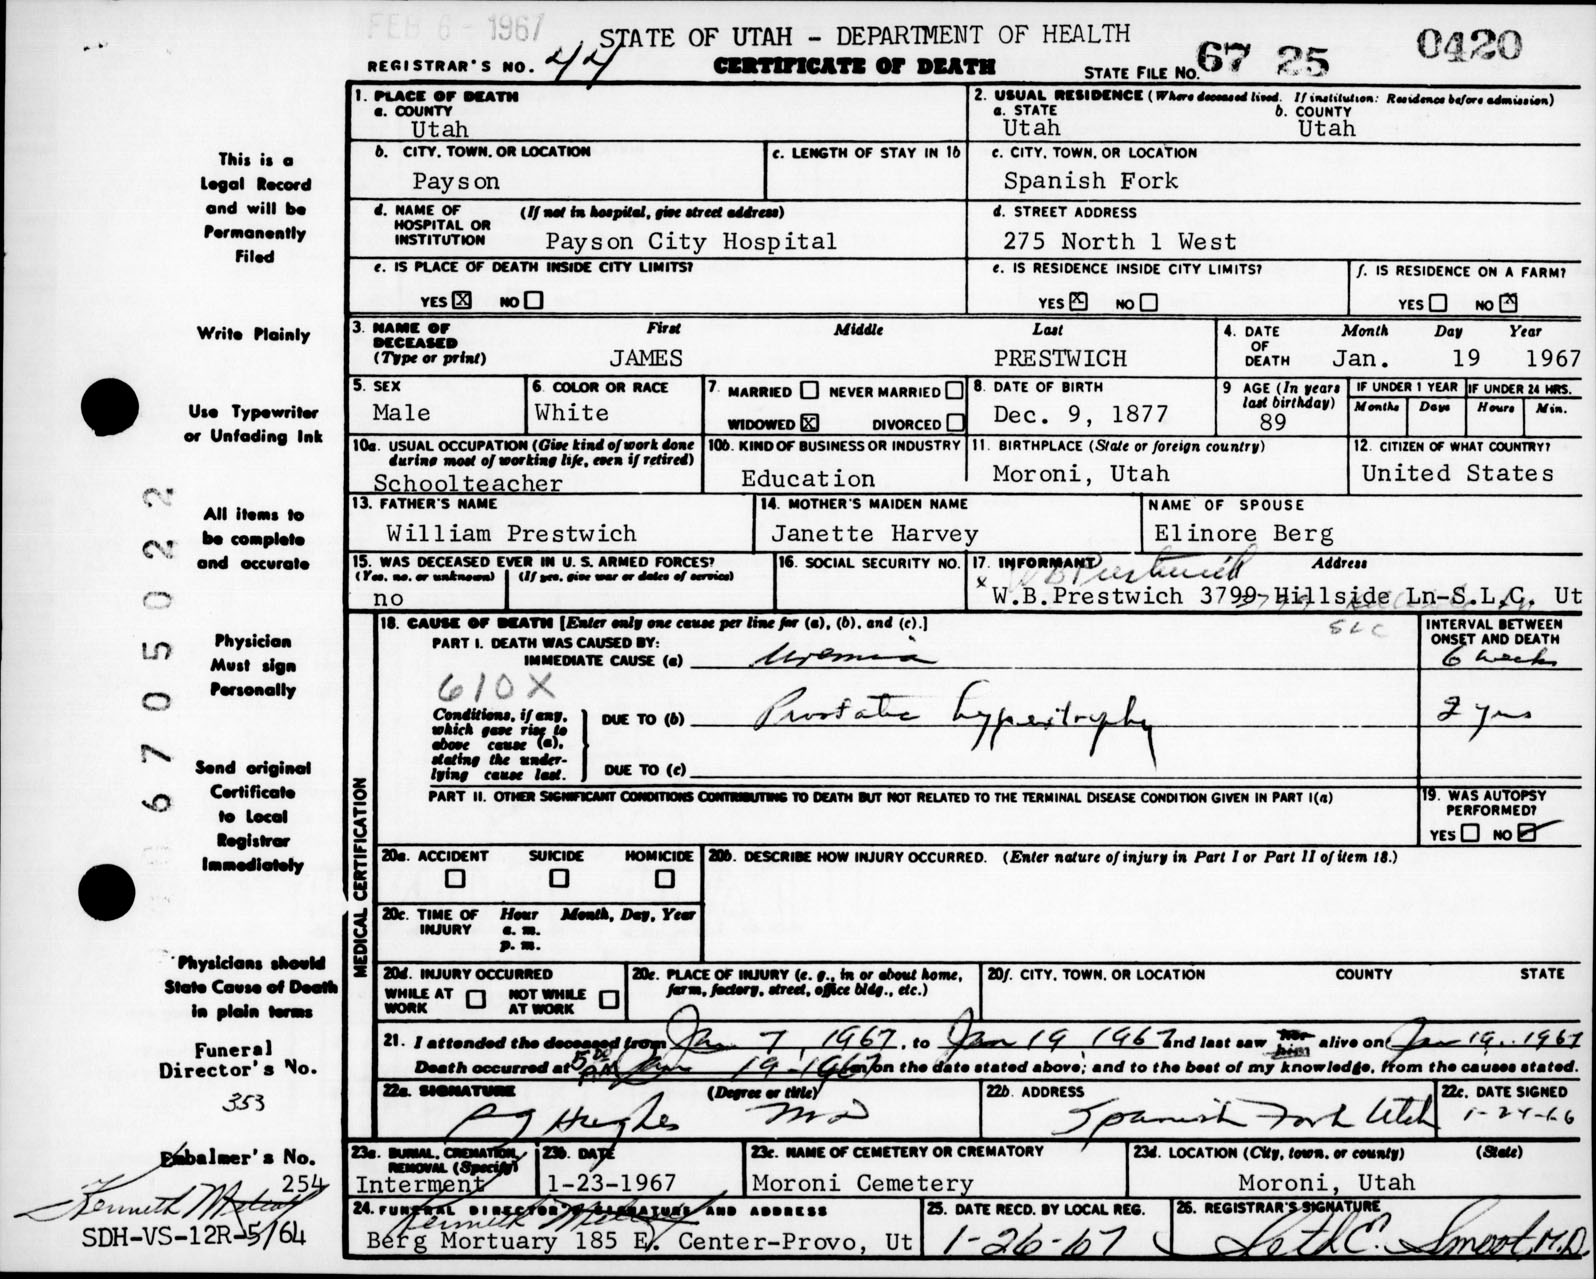 FEB 6 - 1967
STATE OF UTAH - DEPARTMENT OF HEALTH
REGISTRAR'S NO. 44
CERTIFICATE OF DEATH
STATE FILE NO. 67 25 0420
This is a
Legal Record
and will be
Permanently
Filed
Write Plainly
Use Typewriter
or Unfading Ink
All items to
be complete
and accurate
Physician
Must sign
Personally
Send original
Certificate
to Local
Registrar
Immediately
Physicians should
State Cause of Death
in plain terms
Funeral
Director's No.
353
Embalmer's No.
254
Kenneth Metcalf
SDH-VS-12R-5/64
6705022
1. PLACE OF DEATH
a. COUNTY
Utah
2. USUAL RESIDENCE (Where deceased lived. If institution: Residence before admission)
a. STATE b. COUNTY
Utah Utah
b. CITY, TOWN, OR LOCATION
Payson
c. LENGTH OF STAY IN 1b
c. CITY, TOWN, OR LOCATION
Spanish Fork
d. NAME OF (If not in hospital, give street address)
HOSPITAL OR
INSTITUTION Payson City Hospital
d. STREET ADDRESS
275 North 1 West
e. IS PLACE OF DEATH INSIDE CITY LIMITS?
YES X NO
e. IS RESIDENCE INSIDE CITY LIMITS?
YES X NO
f. IS RESIDENCE ON A FARM?
YES NO X
3. NAME OF First Middle Last
DECEASED
(Type or print) JAMES PRESTWICH
4. DATE Month Day Year
OF
DEATH Jan. 19 1967
5. SEX
Male
6. COLOR OR RACE
White
7. MARRIED NEVER MARRIED
WIDOWED X DIVORCED
8. DATE OF BIRTH
Dec. 9, 1877
9 AGE (In years
last birthday)
89
IF UNDER 1 YEAR IF UNDER 24 HRS.
Months Days Hours Min.
10a. USUAL OCCUPATION (Give kind of work done
during most of working life, even if retired)
Schoolteacher
10b. KIND OF BUSINESS OR INDUSTRY
Education
11. BIRTHPLACE (State or foreign country)
Moroni, Utah
12. CITIZEN OF WHAT COUNTRY?
United States
13. FATHER'S NAME
William Prestwich
14. MOTHER'S MAIDEN NAME
Janette Harvey
NAME OF SPOUSE
Elinore Berg
15. WAS DECEASED EVER IN U.S. ARMED FORCES?
(Yes, no, or unknown) (If yes, give war or dates of service)
no
16. SOCIAL SECURITY NO.
17. INFORMANT Address
x W B Prestwich
W.B.Prestwich 3799 Hillside Ln-S.L.C. Ut
SLC
18. CAUSE OF DEATH [Enter only one cause per line for (a), (b), and (c).]
INTERVAL BETWEEN
ONSET AND DEATH
PART I. DEATH WAS CAUSED BY:
IMMEDIATE CAUSE (a) Uremia 6 weeks
610X
Conditions, if any,
which gave rise to
above cause (a),
stating the under-
lying cause last.
DUE TO (b) Prostatic hypertrophy 2 yrs
DUE TO (c)
PART II. OTHER SIGNIFICANT CONDITIONS CONTRIBUTING TO DEATH BUT NOT RELATED TO THE TERMINAL DISEASE CONDITION GIVEN IN PART I(a)
19. WAS AUTOPSY
PERFORMED?
YES NO
MEDICAL CERTIFICATION
20a. ACCIDENT SUICIDE HOMICIDE
20b. DESCRIBE HOW INJURY OCCURRED. (Enter nature of injury in Part I or Part II of item 18.)
20c. TIME OF Hour Month, Day, Year
INJURY a. m.
p. m.
20d. INJURY OCCURRED
WHILE AT NOT WHILE
WORK AT WORK
20e. PLACE OF INJURY (e. g., in or about home,
farm, factory, street, office bldg., etc.)
20f. CITY, TOWN, OR LOCATION COUNTY STATE
21. I attended the deceased from Jan 7, 1967, to Jan 19 1967 and last saw her him alive on Jan 19, 1967
Death occurred at AM Jan 19-1967 on the date stated above; and to the best of my knowledge, from the causes stated.
22a. SIGNATURE (Degree or title)
Hughes MD
22b. ADDRESS
Spanish Fork Utah
22c. DATE SIGNED
23a. BURIAL, CREMATION,
REMOVAL (Specify)
Interment
23b. DATE
1-23-1967
23c. NAME OF CEMETERY OR CREMATORY
Moroni Cemetery
23d. LOCATION (City, town, or county) (State)
Moroni, Utah
24. FUNERAL DIRECTOR'S SIGNATURE AND ADDRESS
Kenneth Metcalf
Berg Mortuary 185 E. Center-Provo, Ut
25. DATE RECD. BY LOCAL REG.
1-26-67
26. REGISTRAR'S SIGNATURE
Seth E. Smoot, M.D.